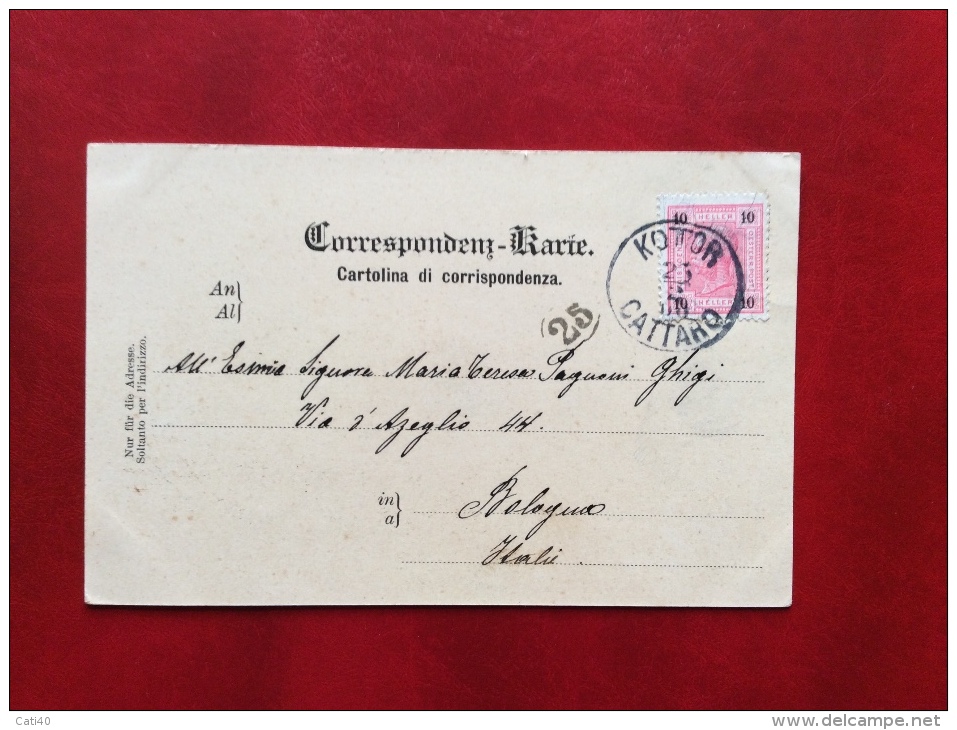 Correspondenz-Karte.
Cartolina di corrispondenza.
10 HELLER 10
OESTERR. POST
10 HELLER 10
KOTOR
25
CATTARO
25
An
Al
All' Esimia Signora Maria Teresa Pagnoni Ghigi
Via d'Azeglio 44.
in
a
Bologna
Italie.
Nur für die Adresse.
Soltanto per l'indirizzo.
Cati40
www.delcampe.net